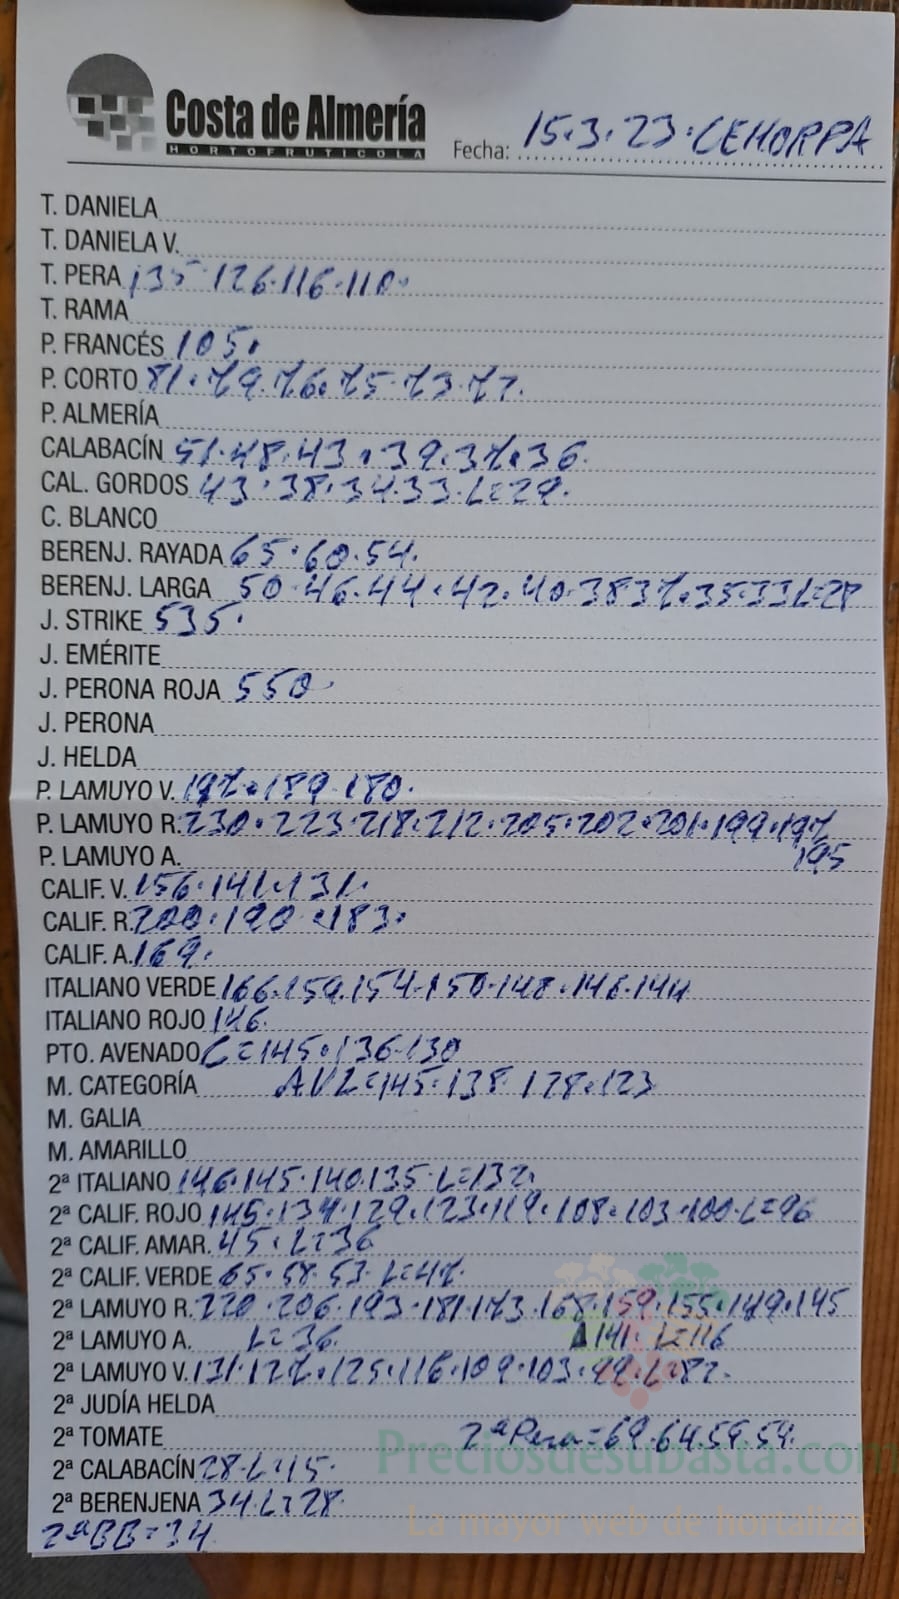 Costa de Almería
HORTOFRUTICOLA
Fecha: 15.3.23.CEHORPA
T. DANIELA
T. DANIELA V.
T. PERA 135 126.116.110.
T. RAMA
P. FRANCÉS 105.
P. CORTO 81.79.76.75.73.72.
P. ALMERÍA
CALABACÍN 51.48.43.39.37.36.
CAL. GORDOS 43.38.34.33.L=29.
C. BLANCO
BERENJ. RAYADA 65.60.54.
BERENJ. LARGA 50.46.44.42.40.38 37.35.33 L=28
J. STRIKE 535.
J. EMÉRITE
J. PERONA ROJA 550
J. PERONA
J. HELDA
P. LAMUYO V. 197.189.180.
P. LAMUYO R. 230.223.218.212.205.202.201.199.197
P. LAMUYO A. 195
CALIF. V. 156.141.131.
CALIF. R. 200.190.183.
CALIF. A. 169.
ITALIANO VERDE 166.159.154.150.148.146.144
ITALIANO ROJO 146.
PTO. AVENADO C=145.136.130
M. CATEGORÍA AVL=145.138 128.123
M. GALIA
M. AMARILLO
2ª ITALIANO 146.145.140.135.L=132.
2ª CALIF. ROJO 145.134.129.123.119.108.103.100.L=96
2ª CALIF. AMAR. 45.L=36
2ª CALIF. VERDE 65.58.53.L=47.
2ª LAMUYO R. 220.206.193.181.173.168.159.155.149.145
2ª LAMUYO A. L=36 141.L=116
2ª LAMUYO V. 131.127.125.116.109.103.99.L=82.
2ª JUDÍA HELDA
2ª TOMATE 2ª Pera=69.64.59.54.
Preciosdesubasta.com
2ª CALABACÍN 28.L=15.
2ª BERENJENA 34.L=28.
La mayor web de hortalizas
2ªBB=34